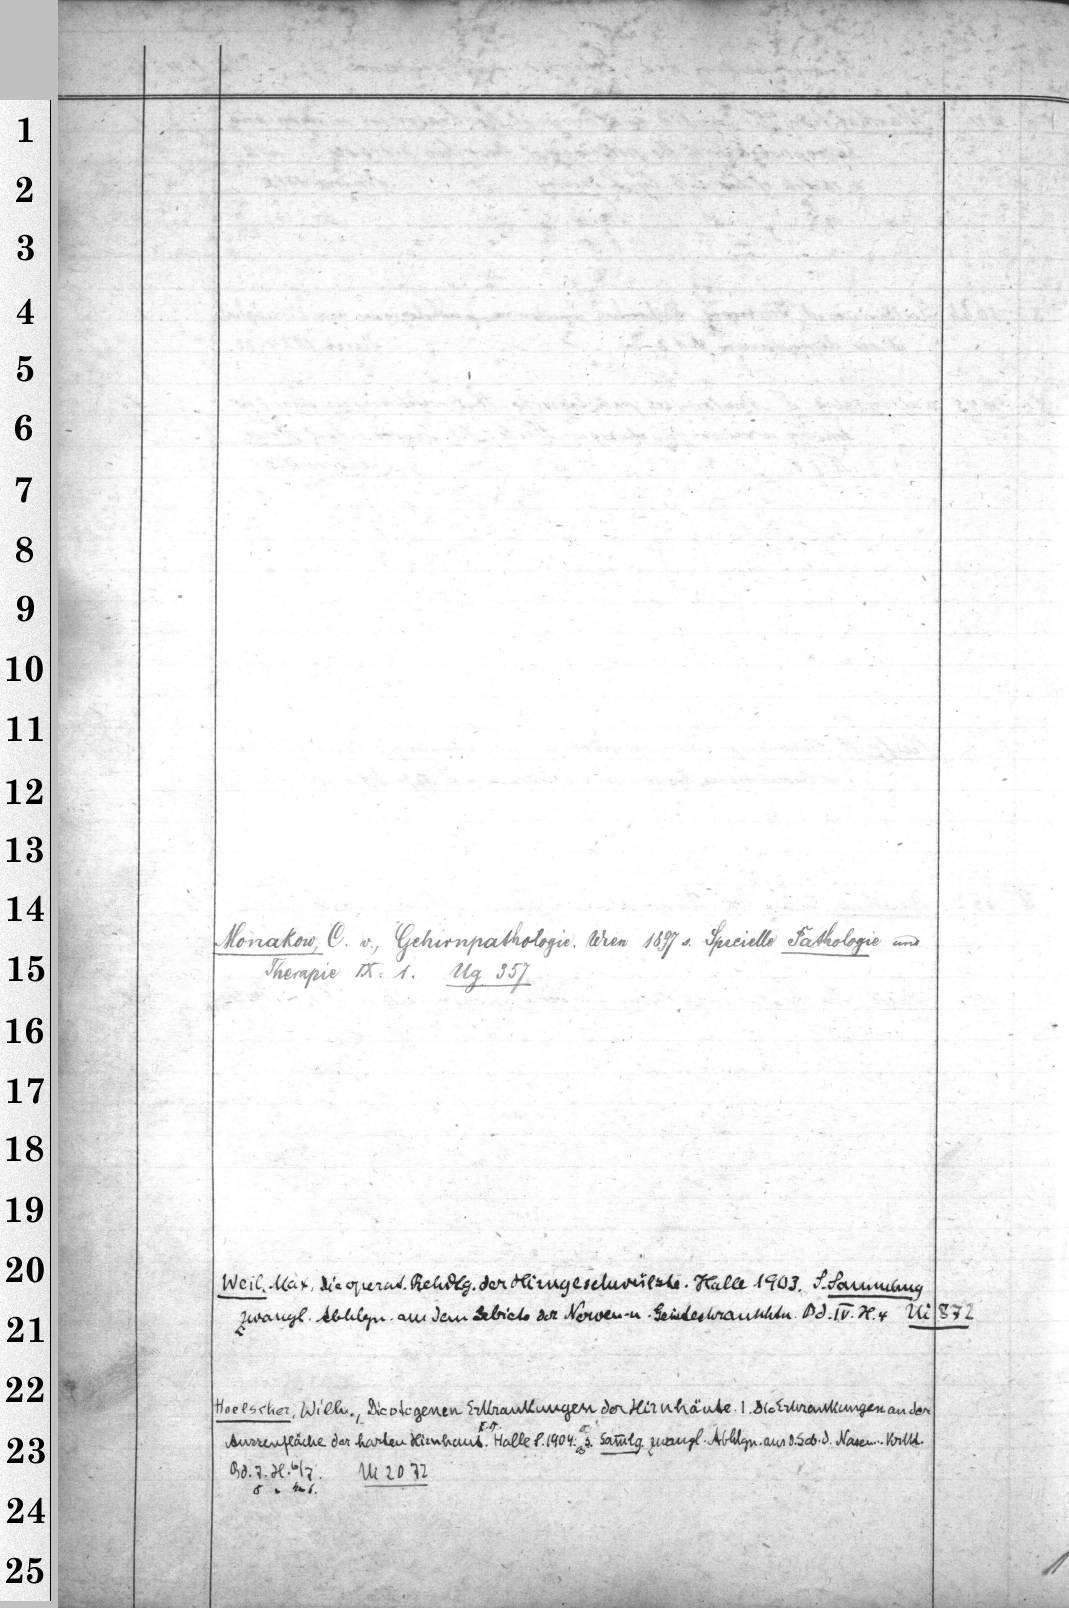 1
2
3
4
5
6
7
8
9
10
11
12
13
14
Monakow, C. v., Gehirnpathologie. Wien 1897 s. Specielle Pathologie und
15
Therapie IX. 1. Ug 357
16
17
18
19
20
Weil, Max, Die operat. Behdlg. der Hirngeschwülste. Halle 1903. S. Sammlung
21
zwangl. Abhlgn. aus dem Gebiete der Nerven- u. Geisteskrankhtn. Bd. IV. H. 4 Ui 872
22
Hoelscher, Wilh., Die otogenen Erkrankungen der Hirnhäute. I. Die Erkrankungen an der
23
Aussenfläche der harten Hirnhaut. Halle S. 1904. s. Samlg. zwangl. Abhlgn. aus d. Geb. d. Nasen-
Bd. 7. H. 6/7. Ui 2072
24
25